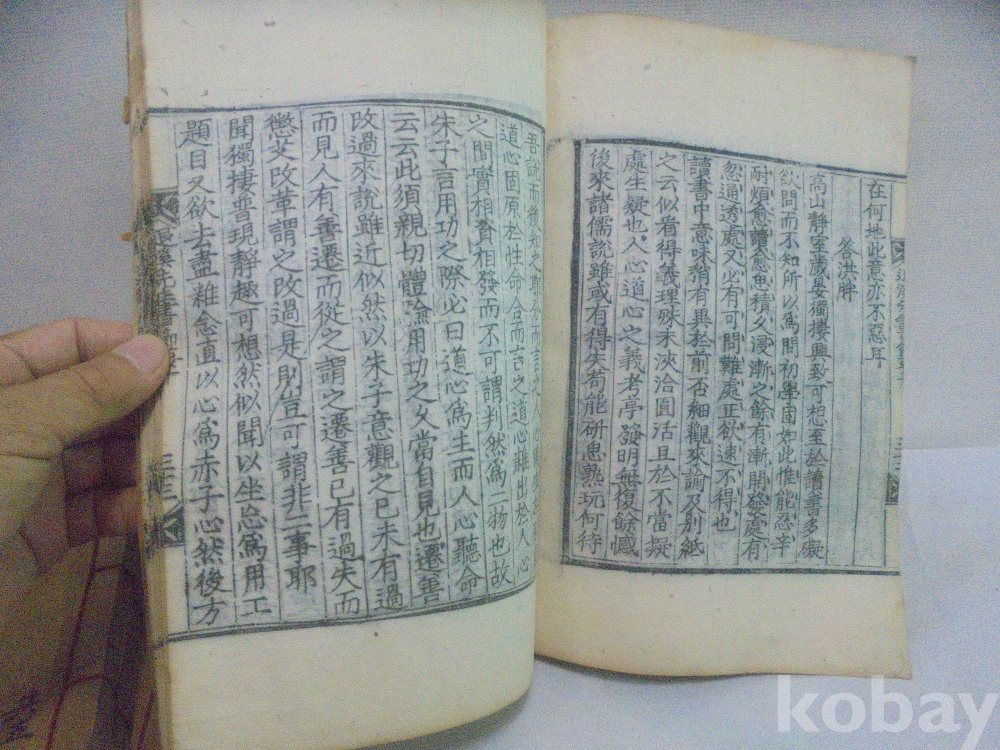 在何地此意亦不惡耳
答洪胖
高山靜室歲晏獨棲興致可想至於讀書多礙
欲問而不知所以爲問初學固如此惟能忍辛
耐煩愈讀愈思積久浸漸之餘有漸開發處有
忽通透處又必有可問難處正欲速不得也
讀書中意味稍有異於前否細觀來諭及別紙
之云似看得義理殊未浹洽圓活且於不當疑
處生疑也人心道心之義考亭發明無復餘憾
後來諸儒說雖或有得失苟能研思熟玩何待
吾說而後知之耶分而言之人心
道心固原於性命合而言之道心雜出於人心
之間實相資相發而不可謂判然爲二物也故
朱子言用功之際必曰道心爲主而人心聽命
云云此須親切體驗用功之久當自見也遷善
改過來說雖近似然以朱子意觀之已未有過
而見人有善遷而從之謂之遷善已有過失而
懲艾改革謂之改過是則豈可謂非二事耶
聞獨棲普現靜趣可想然似聞以坐忘爲用工
題目又欲去盡雜念直以心爲赤子心然後方
kobay